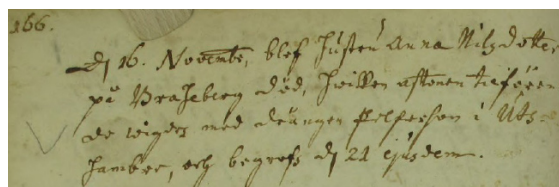 166.
Dn 16. Novembr, blef hustru Anna Nilzdotter
på Braheberg död, hvilken aftonen tilförene
de wigdes med drängen Pelperson i Uts=
hambre, och begrofs dn 21 ejusdem.